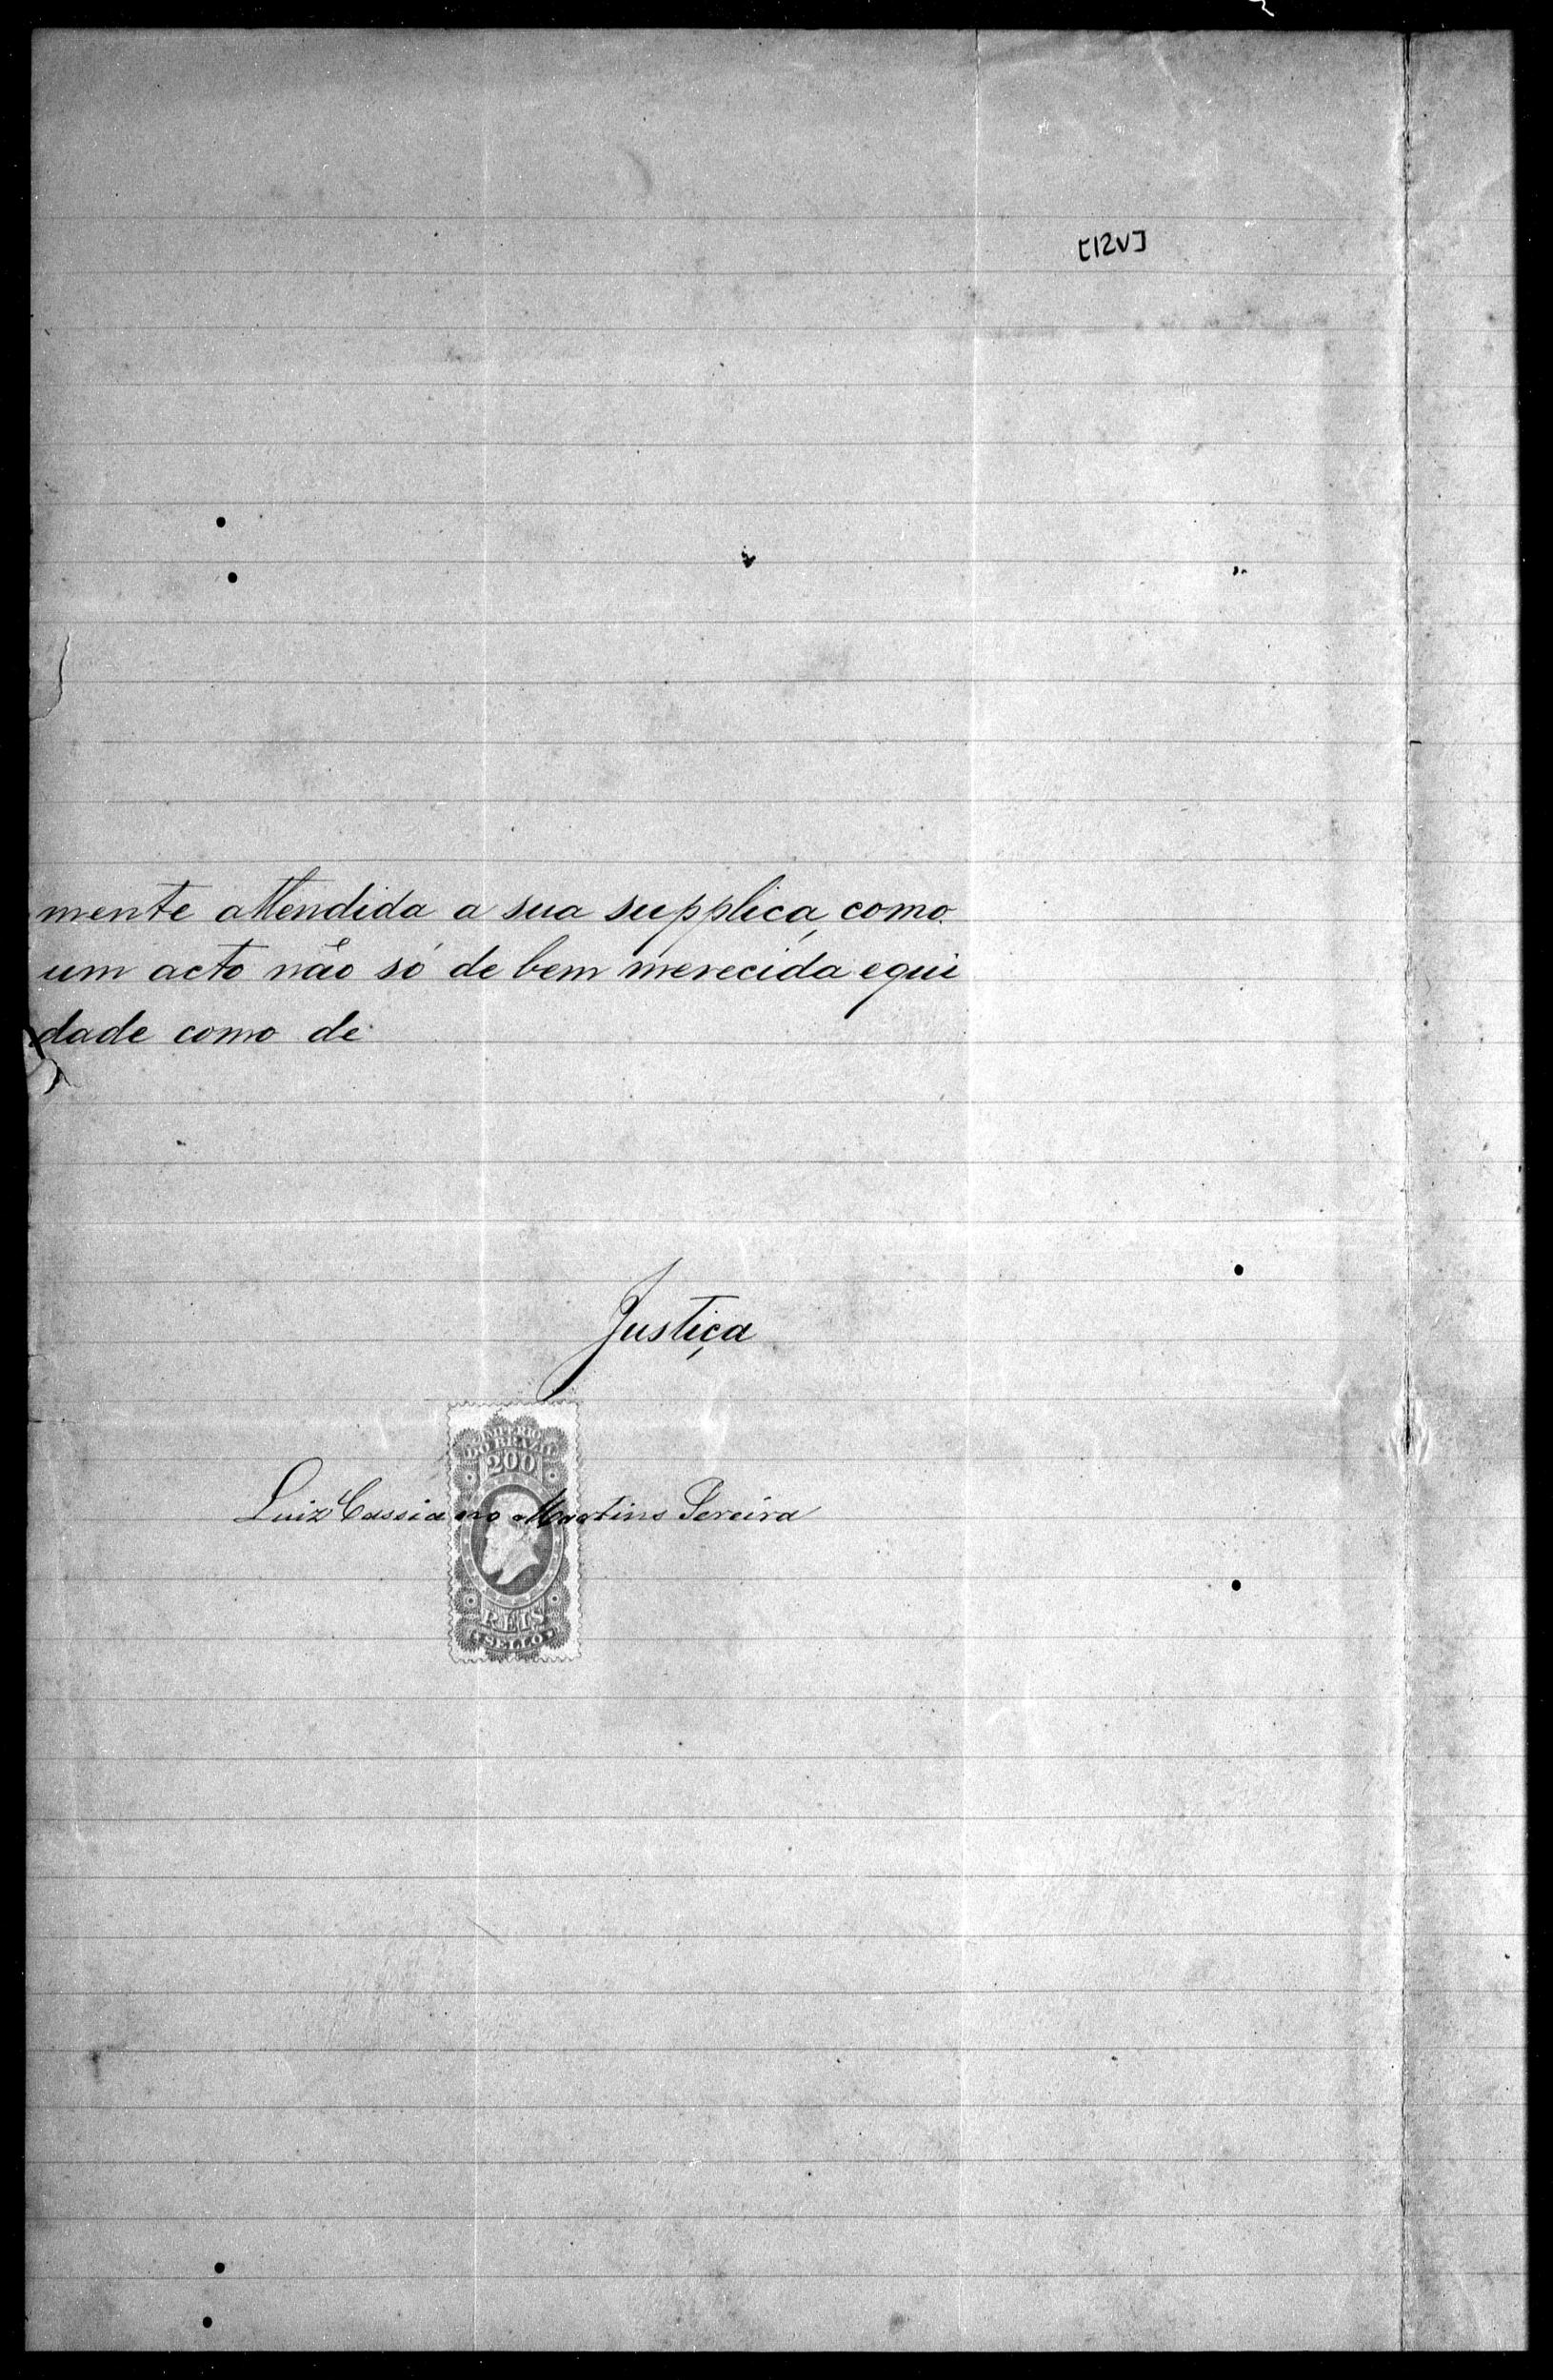 [12v]
mente attendida a sua supplica, como
um acto não só de bem merecida equi
dade como de
Justiça
IMPERIO
DO BRAZIL
200
Luiz Cassiano Martins Pereira
REIS
SELLO